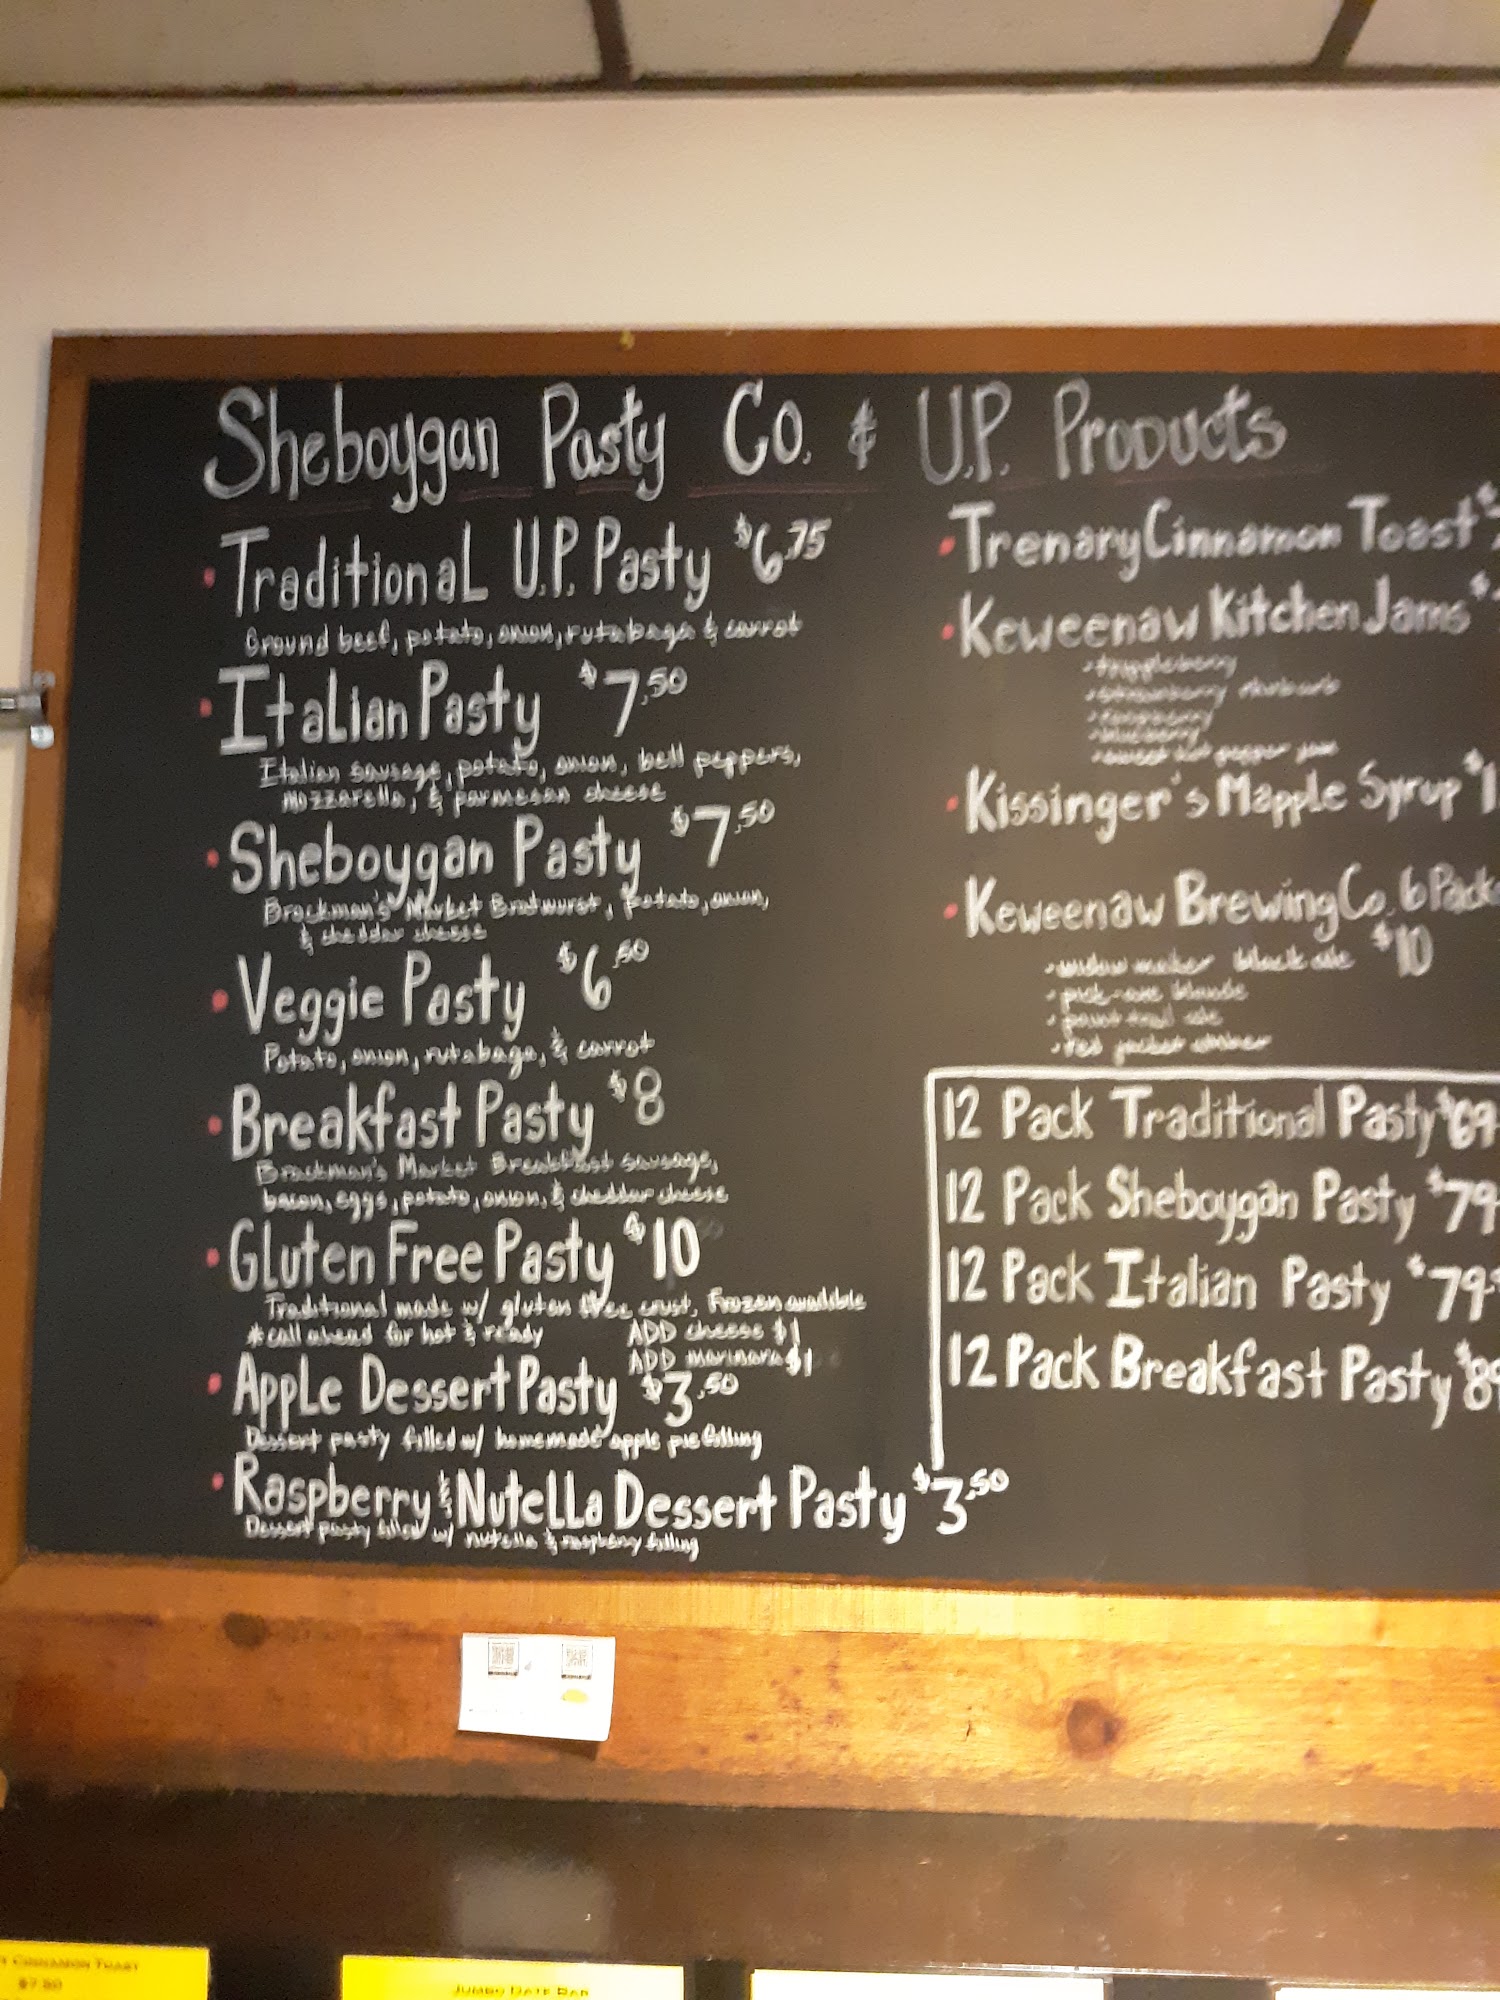 Sheboygan Pasty Co. & U.P. Products
• Traditional U.P. Pasty $6.75
Ground beef, potato, onion, rutabaga & carrot
• Italian Pasty $7.50
Italian sausage, potato, onion, bell peppers,
Mozzarella, & parmesan cheese
• Sheboygan Pasty $7.50
Brockman's Market Bratwurst, potato, onion,
& cheddar cheese
• Veggie Pasty $6.50
Potato, onion, rutabaga, & carrot
• Breakfast Pasty $8
Brockman's Market Breakfast sausage,
bacon, eggs, potato, onion, & cheddar cheese
• Gluten Free Pasty $10
Traditional made w/ gluten free crust, Frozen available
*call ahead for hot & ready
ADD cheese $1
ADD marinara $1
• Apple Dessert Pasty $3.50
Dessert pasty filled w/ homemade apple pie filling
• Raspberry & Nutella Dessert Pasty $3.50
Dessert pasty filled w/ nutella & raspberry filling
• Trenary Cinnamon Toast $
• Keweenaw Kitchen Jams $
• thimbleberry
• strawberry rhubarb
• raspberry
• blueberry
• sweet hot pepper jam
• Kissinger's Mapple Syrup $1
• Keweenaw Brewing Co. 6 Pack
$10
• widow maker black ale
• pick-axe blonde
• point trail ale
• red jacket amber
12 Pack Traditional Pasty $69
12 Pack Sheboygan Pasty $79
12 Pack Italian Pasty $79
12 Pack Breakfast Pasty $8
Cinnamon Toast
$7.50
Jumbo Date Bar